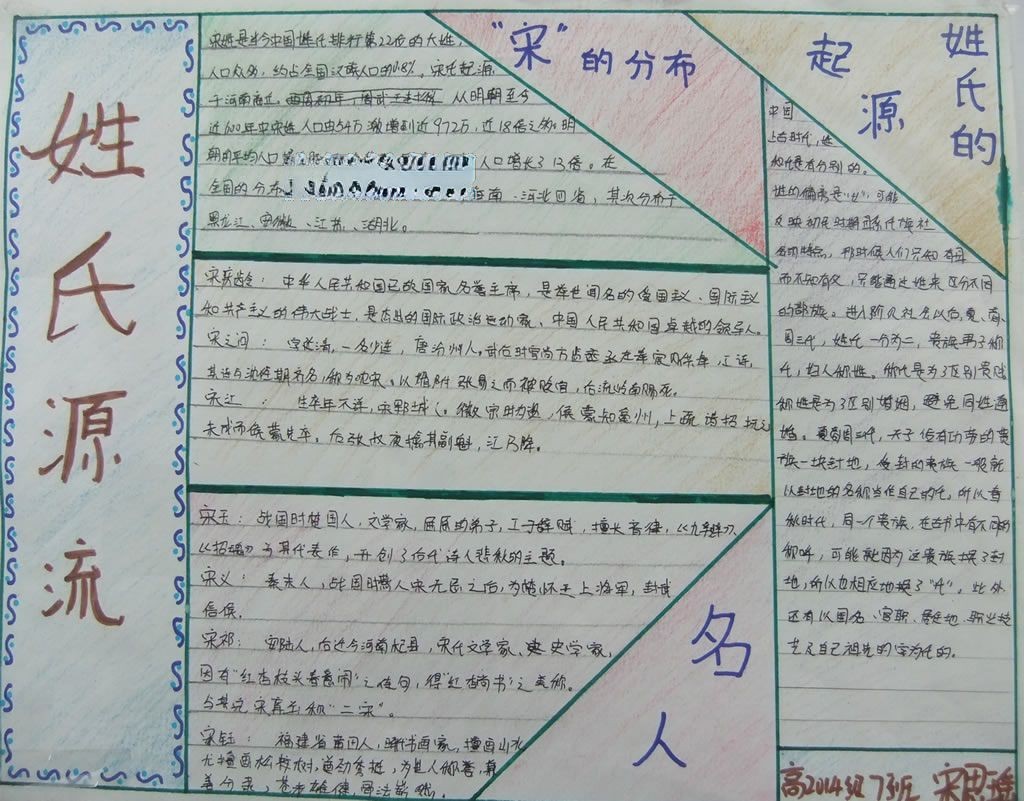 姓氏源流
"宋"的分布
宋姓是当今中国姓氏排行第22位的大姓，
人口众多，约占全国汉族人口的0.8%，宋氏起源
于河南商丘，从明朝至今
近600年中宋姓人口由54万激增到近972万，近18倍之多。明
朝的平均人口 人口增长了13倍。在
全国的分布 河北四省，其次分布于
黑龙江、安徽、江苏、湖北。
宋庆龄：中华人民共和国已故国家名誉主席，是举世闻名的爱国主义、国际主义
和共产主义的伟大战士，是杰出的国际政治活动家、中国人民共和国卓越的领导人。
宋之问：字延清，一名少连，唐汾州人。武后时官尚方监丞
其诗与沈佺期齐名，称为沈宋。以媚附张易之而被贬官，后流岭南赐死。
宋江：生卒年不详，宋郓城人。徽宗时为盗，侯蒙知亳州，上疏请招抚之
未成而侯蒙先卒。后张叔夜擒其副魁，江乃降。
宋玉：战国时楚国人，文学家，屈原的弟子，工于辞赋，擅长音律，《九辩》
《招魂》为其代表作，开创了后代诗人悲秋的主题。
宋义：秦末人，战国时 人宋无忌之后，为楚怀王上将军，封武
信侯。
宋祁：安陆人，后迁今河南杞县，宋代文学家、史学家，
因有"红杏枝头春意闹"之佳句，得"红杏尚书"之美称。
与其兄宋庠并称"二宋"。
宋钰：福建省莆田人，明代书画家，擅画山水
尤擅画松枝树，遒劲秀挺，为世人称善，幕
善分隶，苍老雄健，
名人
姓氏的起源
中国
上古时代，姓
和氏是有分别的。
姓的偏旁是"女"，可能
反映初民时期母系氏族社
会的特点，那时候人们只知有母
而不知有父，只能通过姓来区分不同
的部族。进入阶级社会以后，夏、商、
周三代，姓氏一分为二，贵族男子称
氏，妇人称姓。称氏是为了区别贵贱
称姓是为了区别婚姻，避免同性通
婚。夏商周三代，天子给有功劳的贵
族一块封地，受封的贵族一般就
以封地的名称当作自己的氏，所以春
秋时代，同一个贵族，在古书中有不同的
称呼，可能就因为这贵族换了封
地，所以也相应地换了"氏"。此外
还有以国名、官职、居住地、职业技
艺及自己祖先的字为氏的。
高2014级7班 宋思